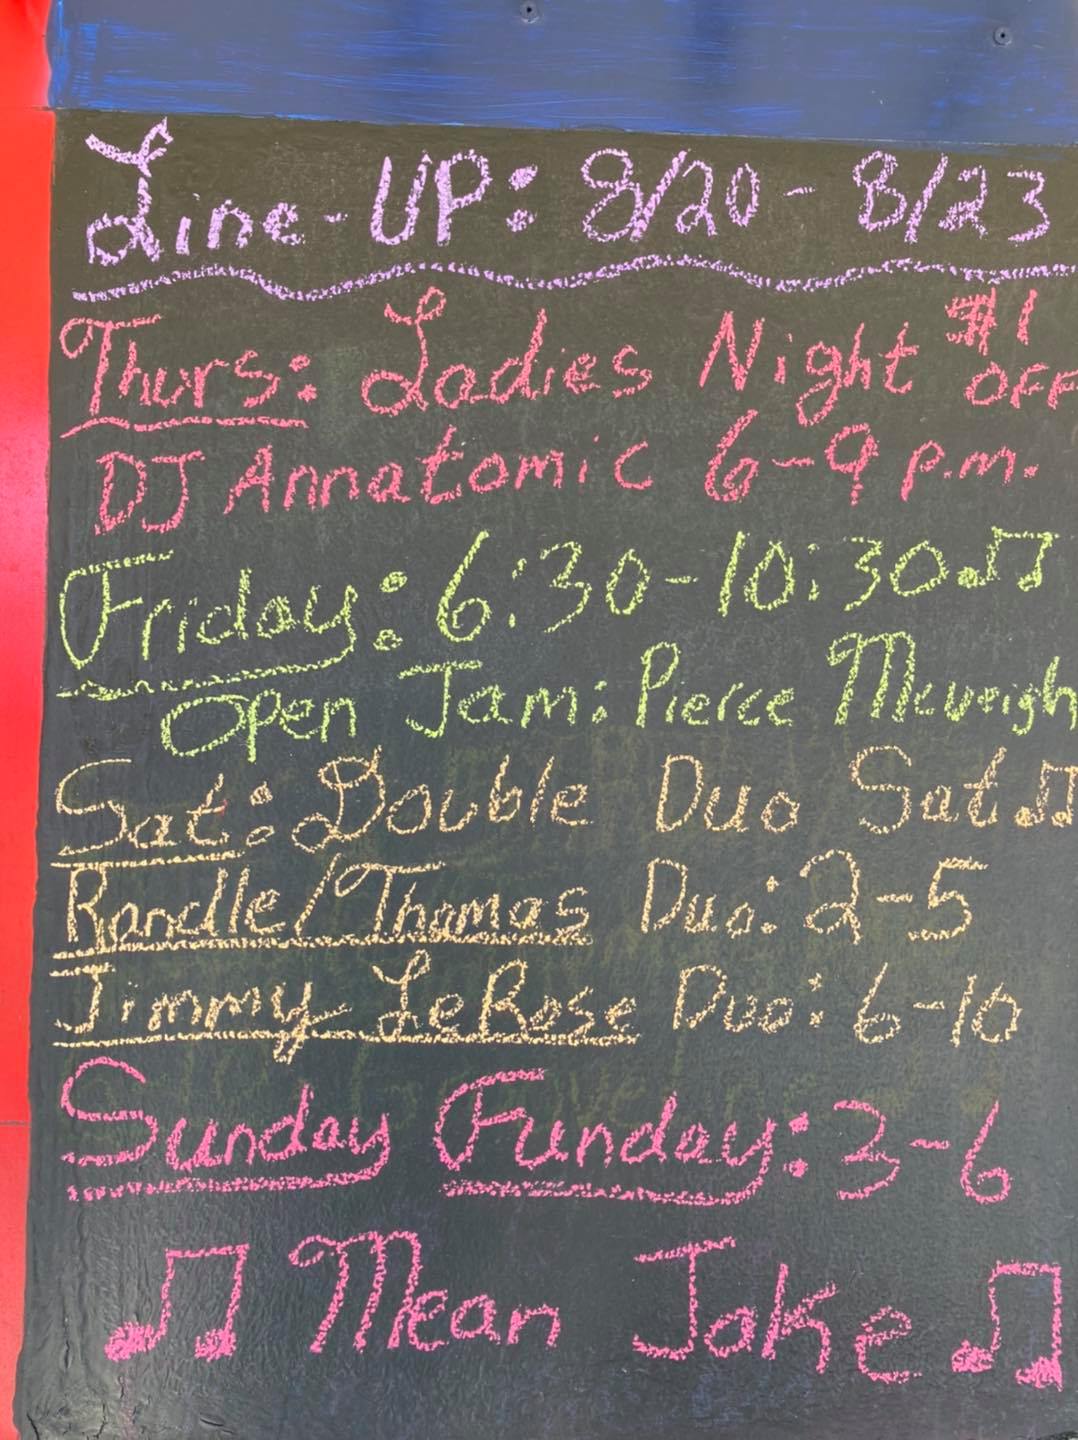 Line-UP: 8/20 - 8/23
Thurs: Ladies Night $1 OFF
DJ Annatomic 6-9 p.m.
Friday: 6:30-10:30
Open Jam: Pierce Mcveigh
Sat: Double Duo Sat
Randle/Thomas Duo: 2-5
Jimmy LeRose Duo: 6-10
Sunday Funday: 3-6
Mean Jake